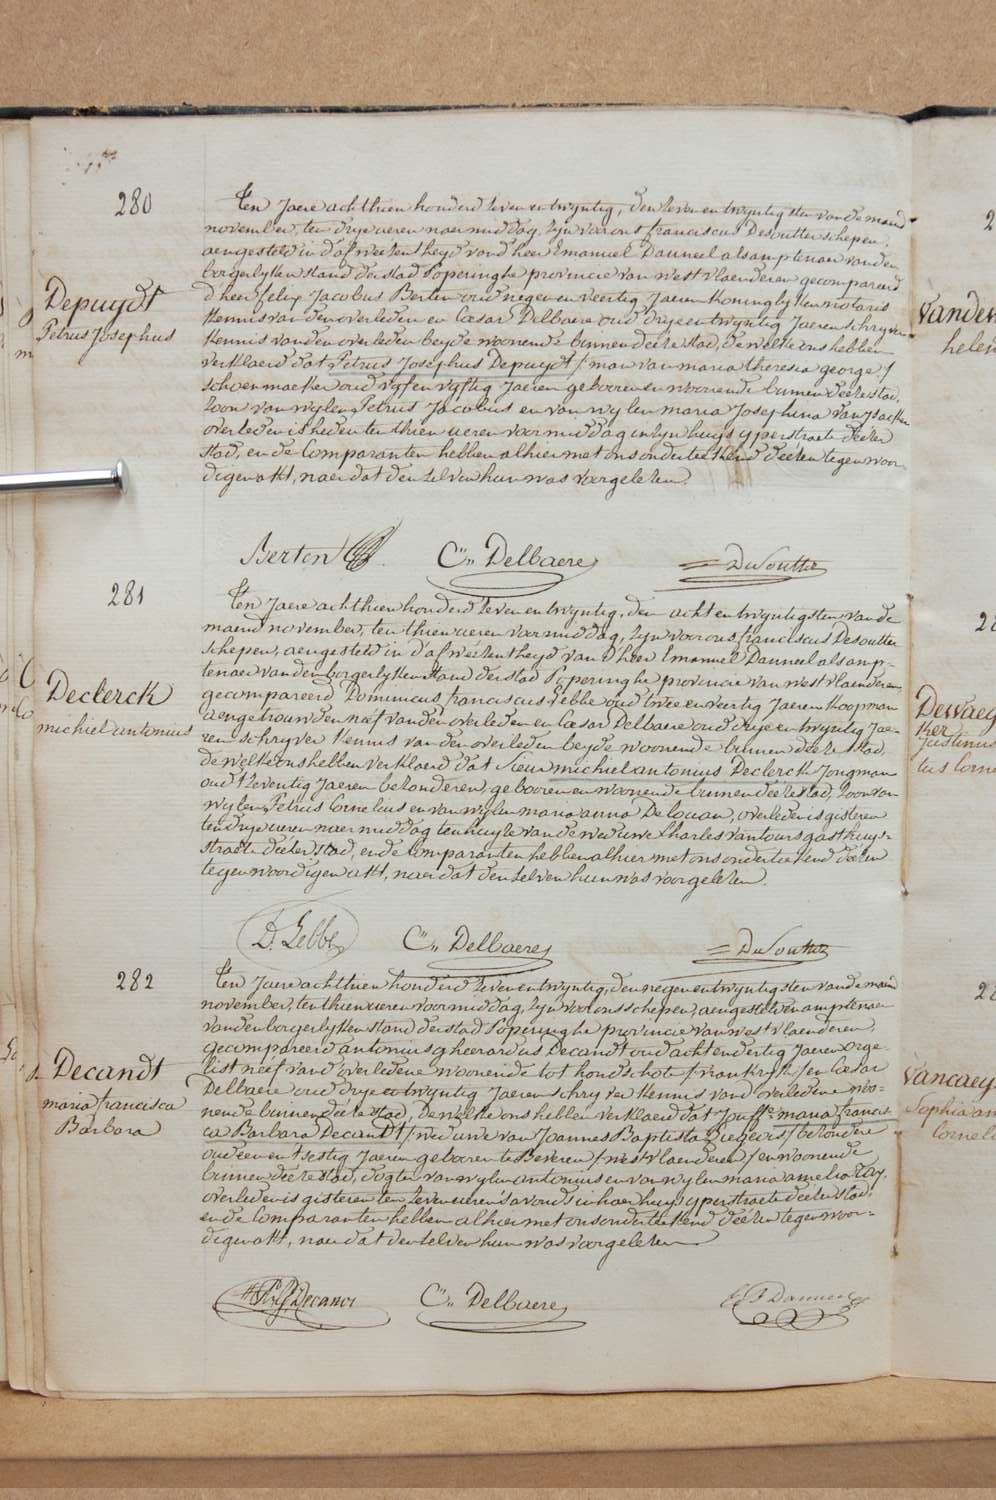 280
Depuydt
Petrus Josephus
Ten Jaere achthien honderd zeven en twyntig, den zeven en twyntigsten van de maend
november, ten drye ueren naermiddag, zyn voor ons franciscus Desoutter schepen,
aengesteld in d'afweezentheyd van d'heer Emanuel Danneel als amptenaer van den
borgerlyken stand der stad Poperinghe provincie van westvlaenderen gecompareerd
d'heer felix Jacobus Berten oud negen en veertig Jaeren koninglyken notaris
Kennis van den overleden en Cæsar Delbaere oud drye en twyntig Jaeren schryver
Kennis van den overleden beyde woonende binnen deéze stad, de welke ons hebben
verklaerd dat Petrus Josephus Depuydt / man van maria theresia george /
schoenmaeker oud vyf en vyftig Jaeren gebooren en woonende binnen deéze stad,
zoon van wylen Petrus Jacobus en van wylen maria Josephina van Isacker
overleden is heden ten thien ueren voormiddag in zyn huys yperstraete deézer
stad, en de Comparanten hebben alhier met ons onderteekend deézen tegenwoor-
digen akt, naer dat den zelven hun was voorgelezen.
Berten
C.n Delbaere
DeSoutter
281
Declerck
michiel antonius
Ten Jaere achthien honderd zeven en twyntig, den acht en twyntigsten van de
maend november, ten thien ueren voormiddag, zyn voor ons franciscus Desoutter
Schepen, aengesteld in d'afweézentheyd van d'heer Emanuel Danneel als amp-
tenaer van den borgerlyken stand der stad Poperinghe provincie van westvlaenderen,
gecompareerd Dominicus franciscus Lebbe oud twee en veertig Jaeren koopman
aengetrouwden neéf van den overleden en Cæsar Delbaere oud drye en twyntig Jae-
ren schryver Kennis van den overleden beyde woonende binnen deéze stad
de welke ons hebben verklaerd dat Sieur michiel antonius Declerck Jongman
oud tzeventig Jaeren bezonderen, gebooren en woonende binnen deéze stad, zoon van
wylen Petrus Cornelius en van wylen maria anna De Couan, overleden is gisteren
ten drye ueren naermiddag ten huyze van de weduwe Charles vantours gasthuys-
straete deézer stad, en de Comparanten hebben alhier met ons onderteekend deézen
tegenwoordigen akt, naer dat den zelven hun was voorgelezen.
D. Lebbe
C.n Delbaere
DeSoutter
282
Decandt
maria francisca
Barbara
Ten Jaere achthien honderd zeven en twyntig, den negen en twyntigsten van de maend
november, ten thien ueren voormiddag, zyn voor ons schepen, aengestelden amptenaer
van den borgerlyken stand der stad Poperinghe provincie van westvlaenderen,
gecompareerd antonius gheerardus Decandt oud acht en dertig Jaeren orge-
list neéf van d'overledene woonende tot hondschote / vrankryk / en Cæsar
Delbaere oud drye en twyntig Jaeren schryver Kennis van d'overledene woo-
nende binnen deéze stad, de welke ons hebben verklaerd dat Jouffe maria francis-
ca Barbara Decandt / weduwe van Joannes Baptista / bezondere
oud een en tsestig Jaeren gebooren te Beveren / westvlaenderen / en woonende
binnen deéze stad, dogter van wylen antonius en van wylen maria amelia Tay,
overleden is gisteren ten zeven ueren 's avonds in haer huys yperstraete deézer stad,
en de Comparanten hebben alhier met ons onderteekend deézen tegenwoor-
digen akt, naer dat den zelven hun was voorgelezen
Decandt
C.n Delbaere
Danneel
Vandew
helen
Dewaeg
ker
Justinus
tus corne
Vancaey
Sophia am
Corneli